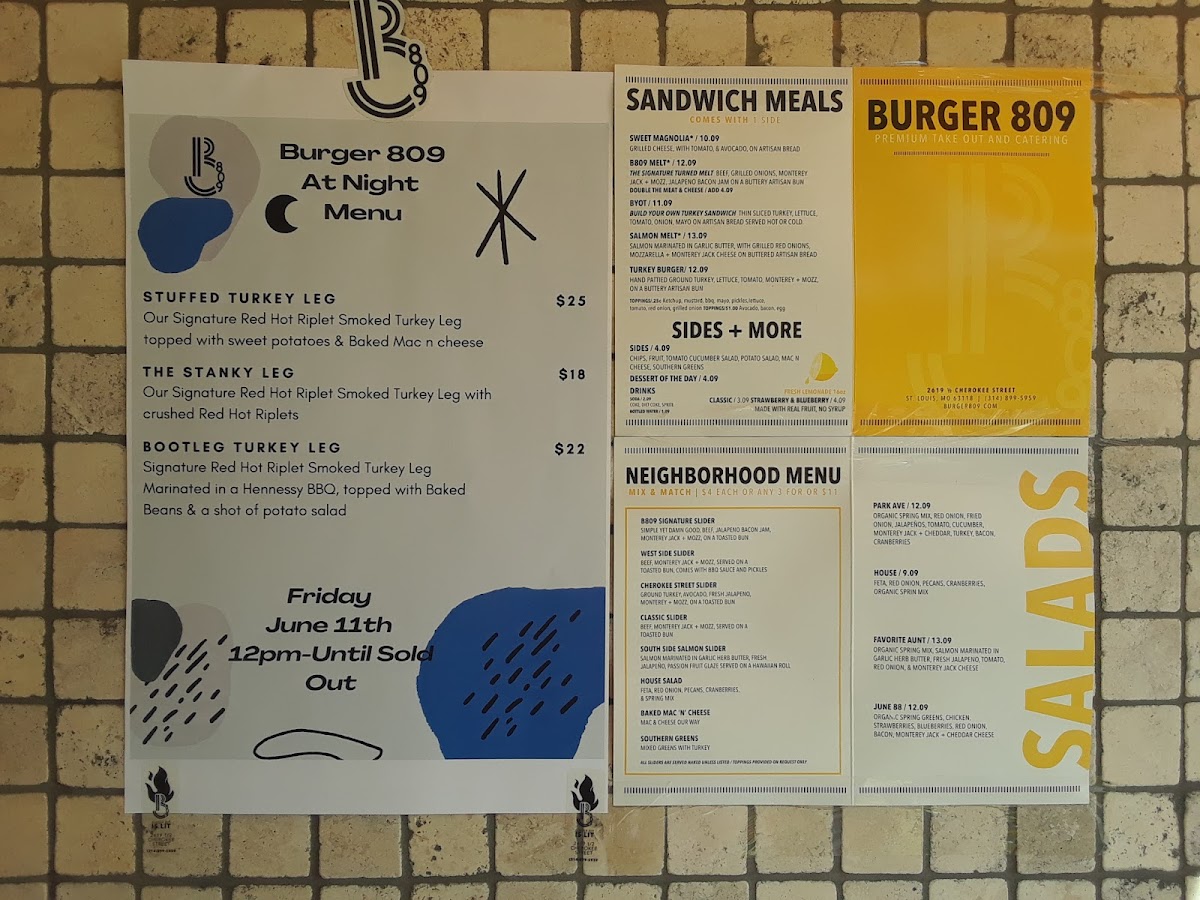 809
809
Burger 809
At Night
Menu
STUFFED TURKEY LEG $25
Our Signature Red Hot Riplet Smoked Turkey Leg
topped with sweet potatoes & Baked Mac n cheese
THE STANKY LEG $18
Our Signature Red Hot Riplet Smoked Turkey Leg with
crushed Red Hot Riplets
BOOTLEG TURKEY LEG $22
Signature Red Hot Riplet Smoked Turkey Leg
Marinated in a Hennessy BBQ, topped with Baked
Beans & a shot of potato salad
Friday
June 11th
12pm-Until Sold
Out
IS LIT
IS LIT
SANDWICH MEALS
COMES WITH 1 SIDE
SWEET MAGNOLIA* / 10.09
GRILLED CHEESE, WITH TOMATO, & AVOCADO, ON ARTISAN BREAD
B809 MELT* / 12.09
THE SIGNATURE TURNED MELT BEEF, GRILLED ONIONS, MONTEREY
JACK + MOZZ, JALAPENO BACON JAM ON A BUTTERY ARTISAN BUN
DOUBLE THE MEAT & CHEESE / ADD 4.09
BYOT / 11.09
BUILD YOUR OWN TURKEY SANDWICH THIN SLICED TURKEY, LETTUCE,
TOMATO, ONION, MAYO ON ARTISAN BREAD SERVED HOT OR COLD.
SALMON MELT* / 13.09
SALMON MARINATED IN GARLIC BUTTER, WITH GRILLED RED ONIONS,
MOZZARELLA + MONTEREY JACK CHEESE ON BUTTERED ARTISAN BREAD
TURKEY BURGER/ 12.09
HAND PATTIED GROUND TURKEY, LETTUCE, TOMATO, MONTEREY + MOZZ,
ON A BUTTERY ARTISAN BUN
TOPPINGS/.25c Ketchup, mustard, bbq, mayo, pickles,lettuce,
tomato, red onion, grilled onion TOPPINGS/$1.00 Avocado, bacon, egg
SIDES + MORE
SIDES / 4.09
CHIPS, FRUIT, TOMATO CUCUMBER SALAD, POTATO SALAD, MAC N
CHEESE, SOUTHERN GREENS
DESSERT OF THE DAY / 4.09
DRINKS
SODA / 2.09
COKE, DIET COKE, SPRITE
BOTTLED WATER / 1.09
FRESH LEMONADE 16oz
CLASSIC / 3.09 STRAWBERRY & BLUEBERRY / 4.09
MADE WITH REAL FRUIT, NO SYRUP
BURGER 809
PREMIUM TAKE OUT AND CATERING
2619 ½ CHEROKEE STREET
ST. LOUIS, MO 63118 | (314) 899-5959
BURGER809.COM
NEIGHBORHOOD MENU
MIX & MATCH | $4 EACH OR ANY 3 FOR OR $11
B809 SIGNATURE SLIDER
SIMPLE YET DAMN GOOD, BEEF, JALAPENO BACON JAM,
MONTEREY JACK + MOZZ, ON A TOASTED BUN
WEST SIDE SLIDER
BEEF, MONTEREY JACK + MOZZ, SERVED ON A
TOASTED BUN, COMES WITH BBQ SAUCE AND PICKLES
CHEROKEE STREET SLIDER
GROUND TURKEY, AVOCADO, FRESH JALAPENO,
MONTEREY + MOZZ, ON A TOASTED BUN
CLASSIC SLIDER
BEEF, MONTEREY JACK + MOZZ, SERVED ON A
TOASTED BUN
SOUTH SIDE SALMON SLIDER
SALMON MARINATED IN GARLIC HERB BUTTER, FRESH
JALAPEÑO, PASSION FRUIT GLAZE SERVED ON A HAWAIIAN ROLL
HOUSE SALAD
FETA, RED ONION, PECANS, CRANBERRIES,
& SPRING MIX
BAKED MAC 'N' CHEESE
MAC & CHEESE OUR WAY
SOUTHERN GREENS
MIXED GREENS WITH TURKEY
ALL SLIDERS ARE SERVED NAKED UNLESS LISTED / TOPPINGS PROVIDED ON REQUEST ONLY
SALADS
PARK AVE / 12.09
ORGANIC SPRING MIX, RED ONION, FRIED
ONION, JALAPEÑOS, TOMATO, CUCUMBER,
MONTEREY JACK + CHEDDAR, TURKEY, BACON,
CRANBERRIES
HOUSE / 9.09
FETA, RED ONION, PECANS, CRANBERRIES,
ORGANIC SPRIN MIX
FAVORITE AUNT / 13.09
ORGANIC SPRING MIX, SALMON MARINATED IN
GARLIC HERB BUTTER, FRESH JALAPENO, TOMATO,
RED ONION, & MONTEREY JACK CHEESE
JUNE 88 / 12.09
ORGANIC SPRING GREENS, CHICKEN,
STRAWBERRIES, BLUEBERRIES, RED ONION,
BACON, MONTEREY JACK + CHEDDAR CHEESE